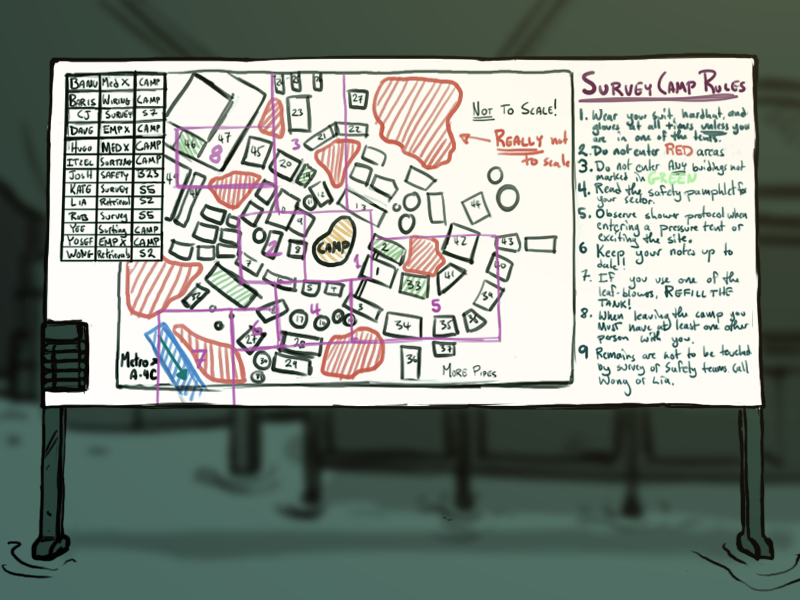 BANU MED X CAMP
BORIS WIRING CAMP
CJ SURVEY S7
DAVE EMPX CAMP
HUGO MEDX CAMP
ITZEL SORTING CAMP
JOSH SAFETY
KATE SURVEY S5
LIA Retrieval S2
ROB Survey S5
YEE Sorting CAMP
YOSEF EMPX CAMP
WONG Retrieval S2
NOT TO SCALE!
REALLY not
to scale
CAMP
1
2
3
4
5
6
7
8
47
46
45
23
27
22
21
20
44
42
43
41
40
39
33
34
35
36
37
28
29
17
Metro
A-4C
MORE PIPES
SURVEY CAMP RULES
1. Wear your suit, hardhat, and
gloves at all times, unless you
are in one of the tents.
2. Do not enter RED areas
3. Do not enter Any buildings not
marked in GREEN
4. Read the safety pamphlet for
your sector.
5. Observe shower protocol when
entering a pressure tent or
exciting the site.
6 Keep your notes up to
date!
7. If you use one of the
leaf-blowers, REFILL THE
TANK!
8. When leaving the camp you
Must have at least one other
person with you.
9 Remains are not to be touched
by survey or Safety teams. Call
Wong or Lia.